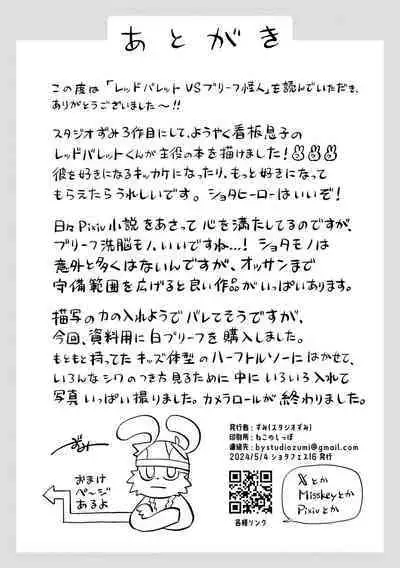 あとがき
この度は「レッドバレットVSブリーフ怪人」を読んでいただき、
ありがとうございました〜!!
スタジオずみ3作目にして、ようやく看板息子の
レッドバレットくんが主役の本を描けました!
彼を好きになるキッカケになったり、もっと好きになって
もらえたらうれしいです。ショタヒーローはいいぞ!
日々Pixiv小説をあさって心を満たしてるのですが、
ブリーフ洗脳モノ、いいですね...! ショタモノは
意外と多くはないんですが、オッサンまで
守備範囲を広げると良い作品がいっぱいあります。
描写の力の入れようでバレてそうですが、
今回、資料用に白ブリーフを購入しました。
もともと持ってたキッズ体型のハーフトルソーにはかせて、
いろんなシワのつき方見るために中にいろいろ入れて
写真いっぱい撮りました。カメラロールが終わりました。
ずみー
おまけ
ページ
あるよ
発行者:ずみ(スタジオずみ)
印刷所:ねこのしっぽ
連絡先:bystudiozumi@gmail.com
2024/5/4 ショタフェス16 発行
各種リンク
Xとか
Misskeyとか
Pixivとか